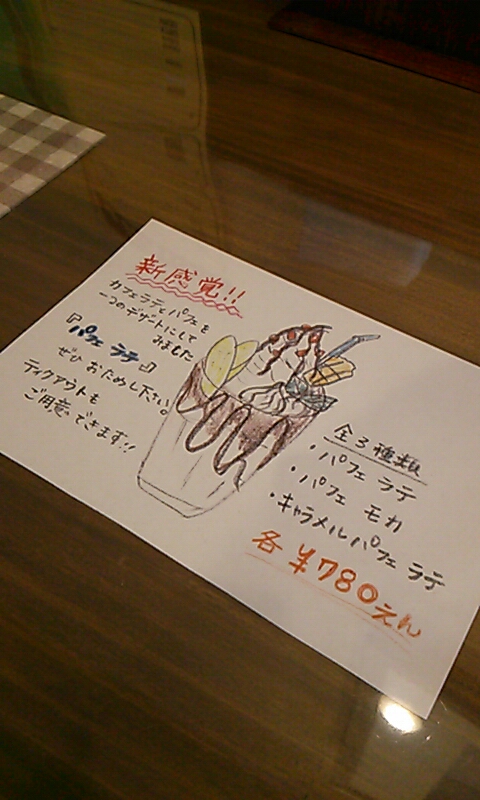 新感覚!!
カフェラテとパフェを
一つのデザートにして
みました
『パフェ ラテ』
ぜひ おためし下さい。
テイクアウトも
ご用意できます!!
全3種類
・パフェ ラテ
・パフェ モカ
・キャラメルパフェ ラテ
各 ¥780えん